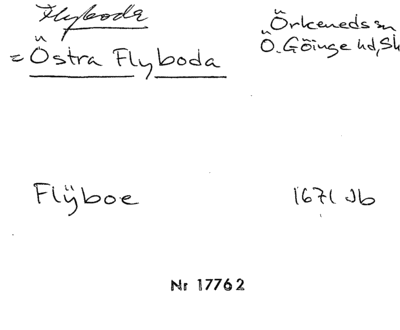 Flyboda
Örkeneds sn
= Östra Flyboda
Ö. Göinge hd, Sk
Flÿboe
1671 Jb
Nr 17762